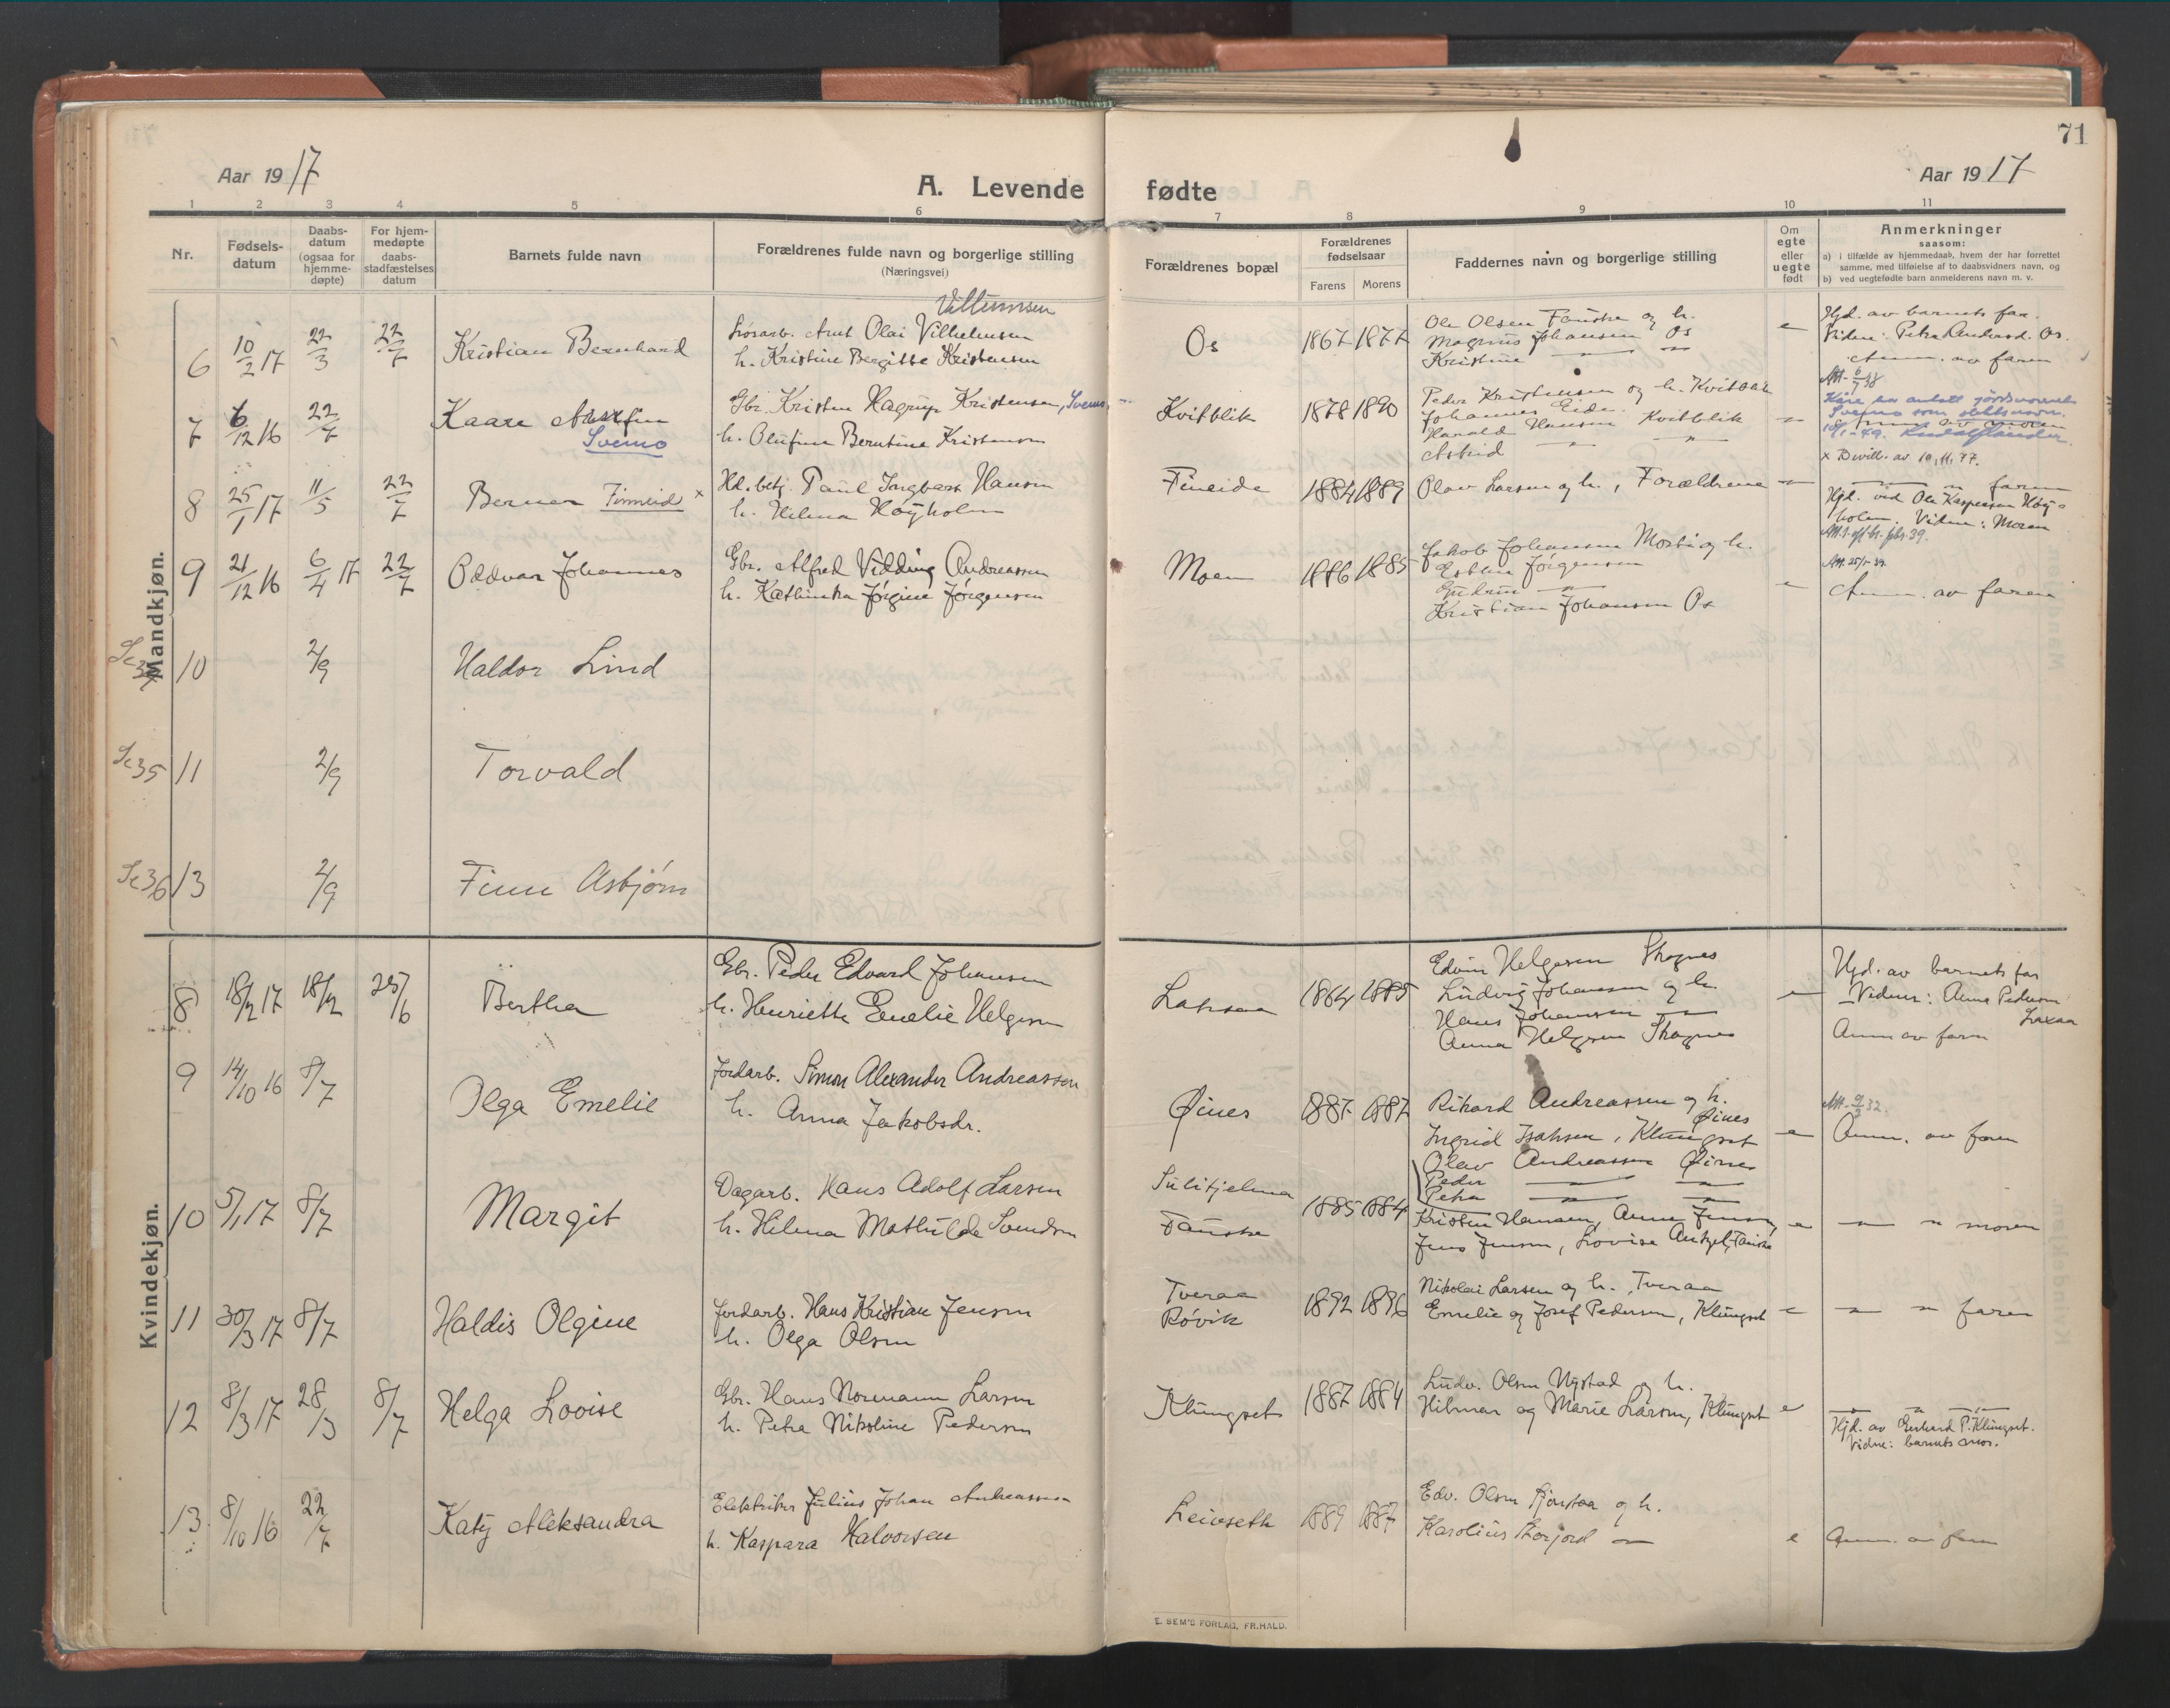 71
Aar 1917
A. Levende fødte
Aar 1917
1 2 3 4 5 6 7 8 9 10 11
Nr.
Fødsels-
datum
Daabs-
datum
(ogsaa for
hjemme-
døpte)
For hjem-
medøpte
daabs-
stadfæstelses
datum
Barnets fulde navn
Forældrenes fulde navn og borgerlige stilling
(Næringsvei)
Forældrenes bopæl
Forældrenes
fødselsaar
Farens Morens
Faddernes navn og borgerlige stilling
Om
egte
eller
uegte
født
Anmerkninger
saasom:
a) i tilfælde av hjemmedaab, hvem der har forrettet
samme, med tilføielse af to daabsvidners navn, og
b) ved uegtefødte barn anmelderens navn m. v.
Mandkjøn.
6 10/2 17 22/3 22/7 Kristian Bernhard
Olai Vilhelmsen
h. Kristine Bergitte Kristensen
Os 1867 1877
Ole Olsen Fauske og h.
Magnus Johansen Os
Kristine — " — "
e
Hjd. av barnets far.
Vidne: Petra Os.
Anm. av faren
7 6/12 16 22/7 Kaare
Svemo
Gbr. Kristen Hagrup Kristensen, Svemo
h. Olufine Berntine Kristensen
Kvitblik 1878 1890
Peder Kristensen og h. Kvitblik
Johannes Eide.
Harald Hansen Kvitblik
Astrid — " — "
— " —
Att. 6/7 38
Kåre har antatt gårdsnavnet
Svemo som slektsnavn.
x Bevill. av 10.11.77.
8 25/1 17 11/5 22/7 Berner Finneid x
Hd. betj. Paul Ingvart Hansen
h. Hilma Høyholm
Fineide 1884 1889
Olav Larsen og h., Forældrene
— " —
— " — " faren
Hjd. ved Ole Kaspersen Høy-
holm. Vidne: Moren
9 21/12 16 6/4 17 22/7 Oddvar Johannes
Gbr. Alfred Vidding Andreassen
h. Kathinka Jørgine Jørgensen
Moen 1886 1885
Jakob Johansen Mosti og h.
Esther Jørgensen
Gudrun — " —
Kristian Johansen Os
Anm. av faren
Sc 34 10 2/9 Haldor Lind
Sc 35 11 2/9 Torvald
Sc 36 13 2/9 Finn Asbjørn
Kvindekjøn.
8 18/2 17 18/2 25/6 Berthea
Gbr. Peder Edvard Johansen
h. Henriette Emelie Helgesen
Laksaa 1864 1885
Edvin Helgesen Skognes
Ludvig Johansen og h.
Hans Johansen — " —
Anna Helgesen Skognes
e
Hjd. av barnets far
Vidne: Anna Pedersen
Laxaa
Anm av faren
9 14/10 16 8/7 Olga Emelie
Jordarb. Simon Alexander Andreassen
h. Anna Jakobsdr.
Øines 1887 1887
Rikard Andreassen og h.
Øines
Ingrid Isaksen, Klungset
Olav Andreassen Øines
Peder — " — — " —
Petra — " — — " —
e
Att. 9/3 32.
Anm. av faren
10 5/1 17 8/7 Margit
Dagarb. Hans Adolf Larsen
h. Hilma Mathilde Svendsen
Sulitjelma
Fauske
1885 1884
Kristen Hansen, Anna Jensen,
Jens Jensen, Lovise Fauske
e
— " — " moren
11 30/3 17 8/7 Haldis Olgine
Jordarb. Hans Kristian Jensen
h. Olga Olsen
Tveraa
Røvik
1892 1896
Nikolai Larsen og h., Tveraa
Emelie og Josef Pedersen, Klungset
e
— " — " faren
12 8/3 17 28/3 8/7 Helga Lovise
Gbr. Hans Normann Larsen
h. Petra Nikoline Pedersen
Klungset 1887 1884
Ludv. Olsen Nystad og h.
Hilmar og Marie Larsen, Klungset
e
— " — " — " —
Hjd. av Gerhard P. Klungset.
Vidne: barnets mor.
13 8/10 16 22/7 Katy Aleksandra
Elektriker Julius Johan Andreassen
h. Kaspara Halvorsen
Leivseth 1889 1887
Edv. Olsen Fjonstaa og h.
Karolius Storjord — " —
e
Anm. av faren
E. SEM'S FORLAG, FR.HALD.